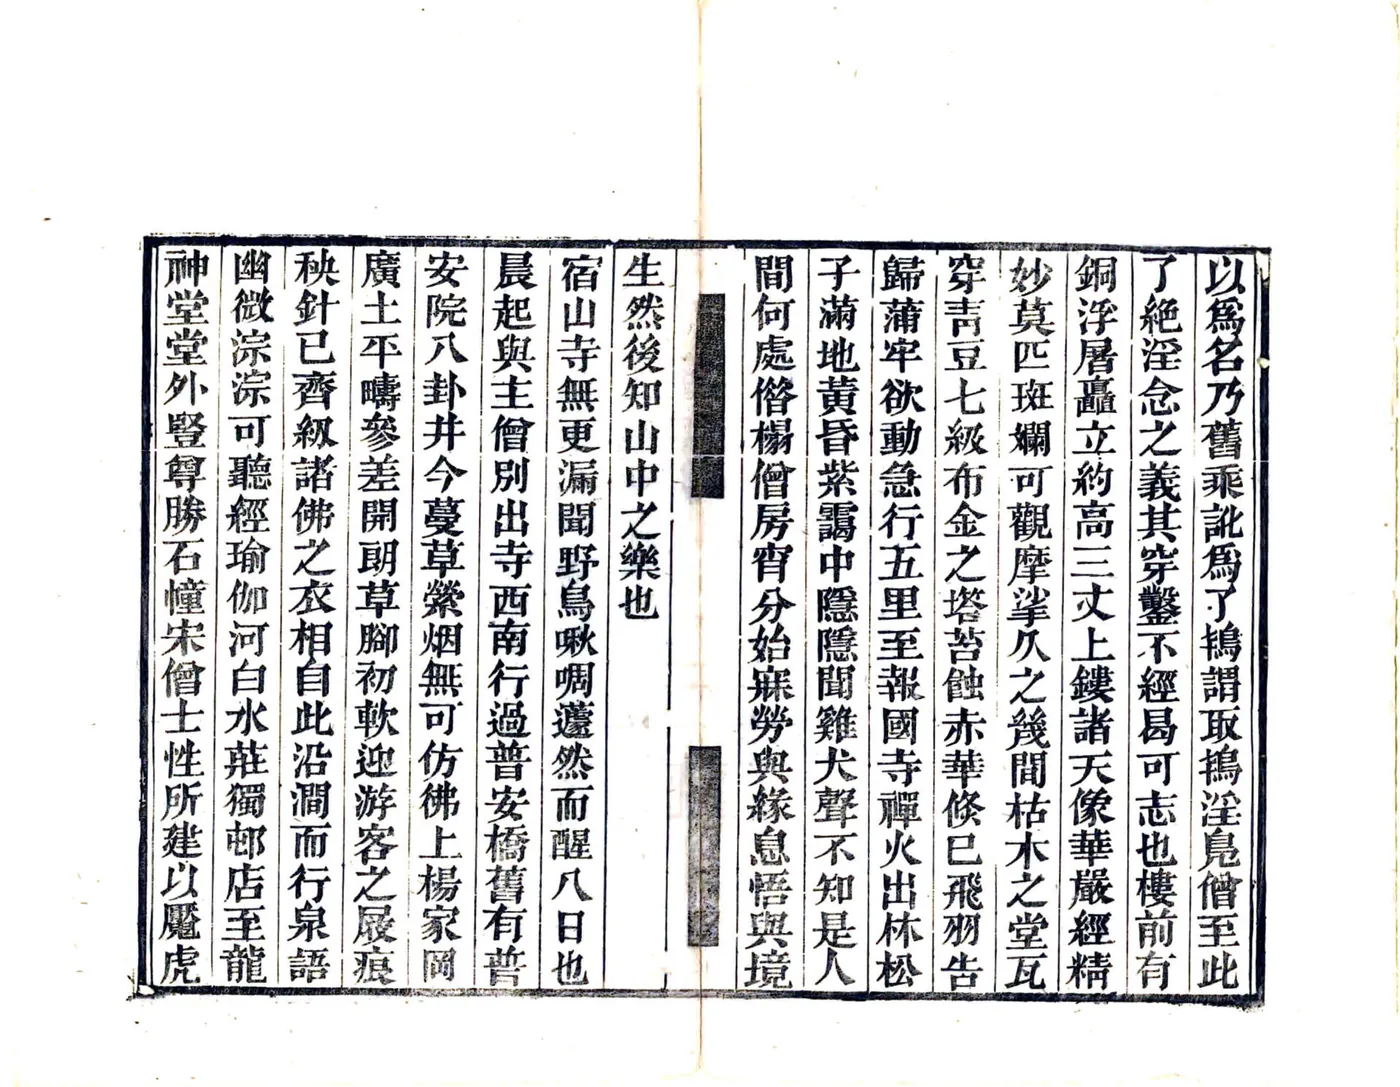 以爲名乃舊乘訛爲了鴇謂取鴇淫鳧僧至此
了絶淫念之義其穿鑿不經曷可志也樓前有
銅浮屠矗立約高三丈上鏤諸天像華嚴經精
妙莫匹斑斕可觀摩挲久之幾間枯木之堂瓦
穿靑豆七級布金之塔苔蝕赤華倐巳飛羽告
歸蒲牢欲動急行五里至報國寺禪火出林松
子滿地黃昏紫靄中隱隱聞雞犬聲不知是人
間何處俻榻僧房宵分始寐勞與緣息悟與境
生然後知山中之樂也
宿山寺無更漏聞野鳥啾啁蘧然而醒八日也
晨起與主僧別出寺西南行過普安橋舊有普
安院八卦井今蔓草縈烟無可仿彿上楊家岡
廣土平疇參差開朗草腳初軟迎游客之屐痕
秧針已齊紉諸佛之衣相自此沿澗而行泉語
幽微淙淙可聽經瑜伽河白水莊獨邨店至龍
神堂堂外竪尊勝石幢宋僧士性所建以魘虎